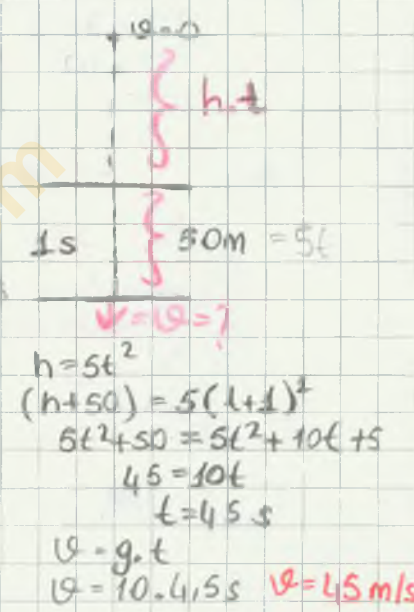 ϑ=0
h.t
1s
50m = 5t
ϑ=?
h=5t²
(h+50) = 5(t+1)²
5t²+50 = 5t²+10t+5
45=10t
t=45 s
ϑ=g.t
ϑ=10.4,5s ϑ=45m/s